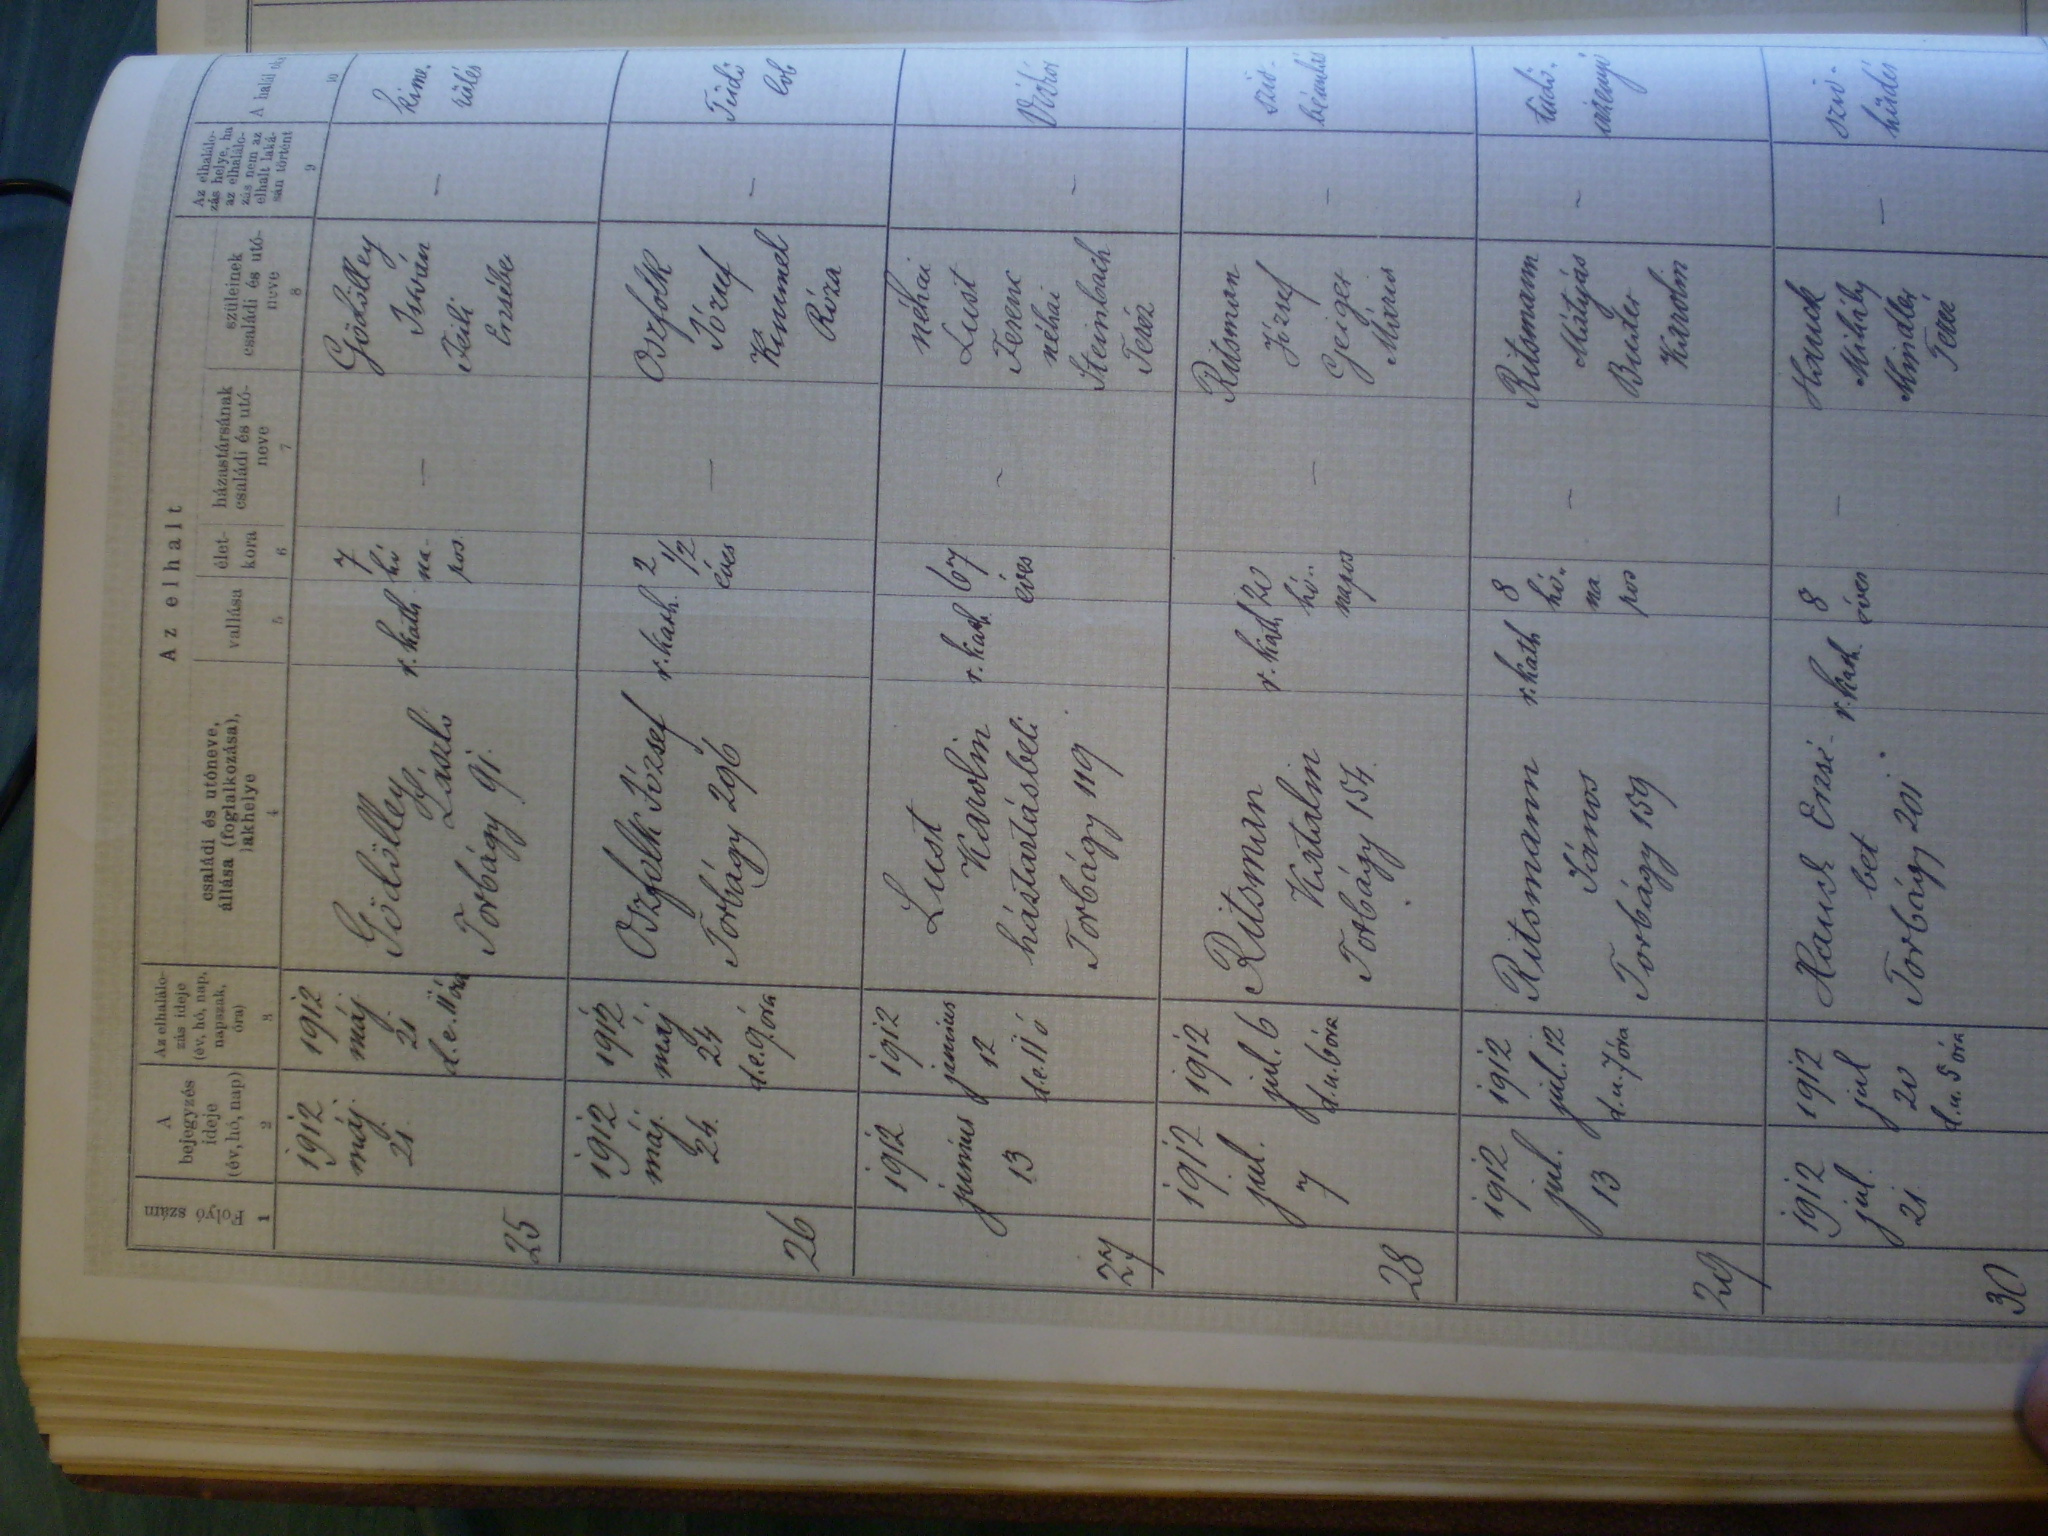 Az elhalt
Folyó szám
A bejegyzés ideje (év, hó, nap)
Az elhalálozás ideje (év, hó, nap, napszak, óra)
családi és utóneve, állása (foglalkozása), lakhelye
vallása
élet-kora
házastársának családi és utó-neve
szüleinek családi és utó-neve
Az elhalálo-zás helye, ha az elhaláló-zás nem az elhalt laká-sán történt
A halál oka
1
2
3
4
5
6
7
8
9
10
25
1912
máj.
21.
1912
máj
21
d.e. 11 óra
Gödölley
László
Torbágy 91.
r. kath.
7
hó
na-
pos.
—
Gödölley
István
—
kime-
rülés
26
1912
máj.
24.
1912
máj
24
d.e. 9 óra
Oszfolk József
Torbágy 296
r. kath.
2
1/2
éves
—
Oszfolk
József
Kimmel
Róza
—
Tüdő
lob
27
1912
junius
13
1912
junius
12
d.e. 11 ó
Lust
Karolin
háztartásbeli
Torbágy 119
r. kath.
67
éves
—
néhai
Lust
Ferenc
néhai
Steinbach
Teréz
—
28
1912
jul.
7
1912
jul. 6
d.u. 6 óra
Ritsman
Katalin
Torbágy 154.
r. kath
20
hó-
napos
—
Ritsman
József
Geiger
Mária
—
sziv-
bénulás
29
1912
jul.
13
1912
jul. 12
d.u. 7 óra
Ritsmann
János
Torbágy 159
r. kath
8
hó-
na
pos
—
Ritsmann
Mátyás
Karolin
—
tüdő-
30
1912
jul.
21.
1912
jul
20
d.u. 5 óra
Hauck Erzsé-
bet
Torbágy 201
r. kath.
8
éves
—
Hauck
Mihály
Mindler
—
sziv-
hüdés